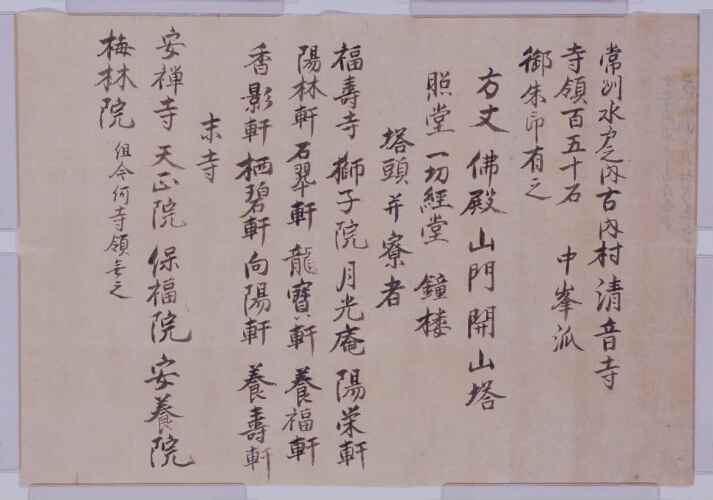 常州水戸之内古内村清音寺
寺領百五十石　中峯派
御朱印有之
方丈　佛殿　山門　開山塔
照堂　一切經堂　鐘楼
塔頭并寮者
福壽寺　獅子院　月光庵　陽栄軒
陽林軒　石翠軒　龍寶軒　養福軒
香影軒　栖碧軒　向陽軒　養壽軒
末寺
安禅寺　天正院　保福院　安養院
梅林院　但今何寺領無之